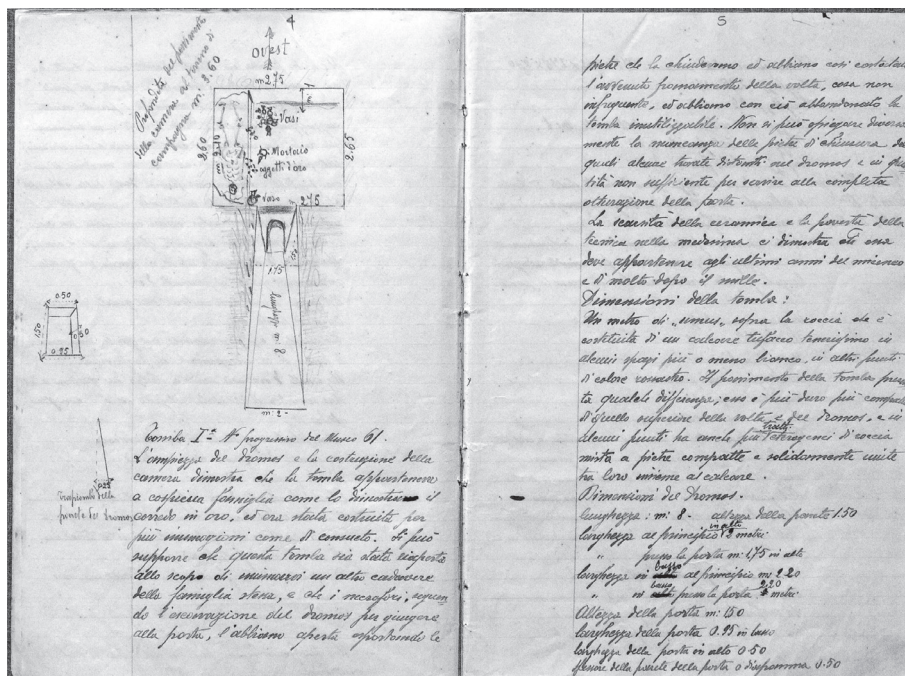 4
Ovest
m 2.75
Profondità del pavimento
della camera a terreno di
campagna m: 3,60
Vasi
Mortaio
oggetti d'oro
Vaso
m 2.75
2.95
2.60
1.75
lunghezza m: 8
m: 2 -
0.50
1.50
0.50
0.95
0.25
Strapiombo della
parete del dromos
Tomba Iª Nº progressivo del Museo 61.
L'ampiezza del dromos e la costruzione della
camera dimostra che la tomba apparteneva
a cospicua famiglia come lo dimostra il
corredo in oro, ed era stata costruita per
più inumazioni come di consueto. Si può
supporre che questa tomba sia stata riaperta
allo scopo di inumarvi un altro cadavere
della famiglia stessa, e che i necrofori, seguen
do l'escavazione del dromos per giungere
alla porta, l'abbiano aperta asportando le
5
pietre che la chiudevano ed abbiano così constatato
l'avvenuto franamento della volta, cosa non
infrequente, ed abbiano con ciò abbandonato la
tomba inutilizzabile. Non si può spiegare diversa
mente la mancanza delle pietre di chiusura, delle
quali alcune trovate distanti nel dromos e in quan
tità non sufficiente per servire alla completa
otturazione della porta.
La scarsità della ceramica e la povertà della
tecnica nella medesima ci dimostra che essa
deve appartenere agli ultimi anni del miceneo
e di molto dopo il mille.
Dimensioni della tomba:
Un metro di „umus„ sopra la roccia che è
costituita di un calcare tufaceo tenerissimo in
alcuni spazi più o meno bianco, in altri punti
di colore rossastro. Il pavimento della tomba presen
ta qualche differenza; esso è più duro più compatto
di quello superiore della volta e del dromos, e in
alcuni punti ha anche tratti eterogenei di roccia
mista a pietre compatte e solidamente unite
tra loro insieme al calcare.
Dimensioni del Dromos.
lunghezza: m: 8 - altezza della parete 1.50
larghezza al principio in alto 2 metri
„ presso la porta m: 1,75 in alto
larghezza in basso al principio m: 2.20
„ in basso presso la porta 2.20 metri
Altezza della porta m: 1.50
larghezza della porta 0.95 in basso
larghezza della porta in alto 0.50
spessore della parete della porta o diaframma 0.50